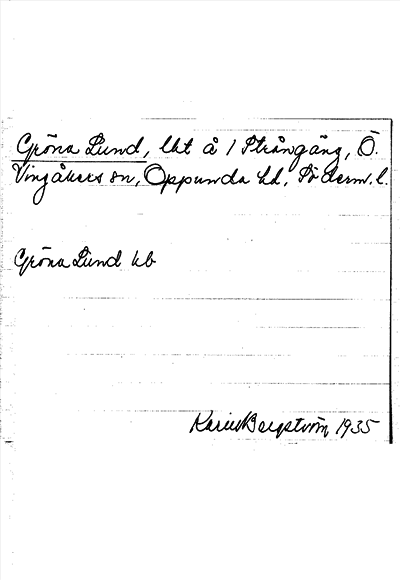 Gröna Lund, lht å 1 Strångäng, Ö.
Vingåkers sn, Oppunda hd, Söderm. l.
Gröna Lund hb
Karin Bergström 1935